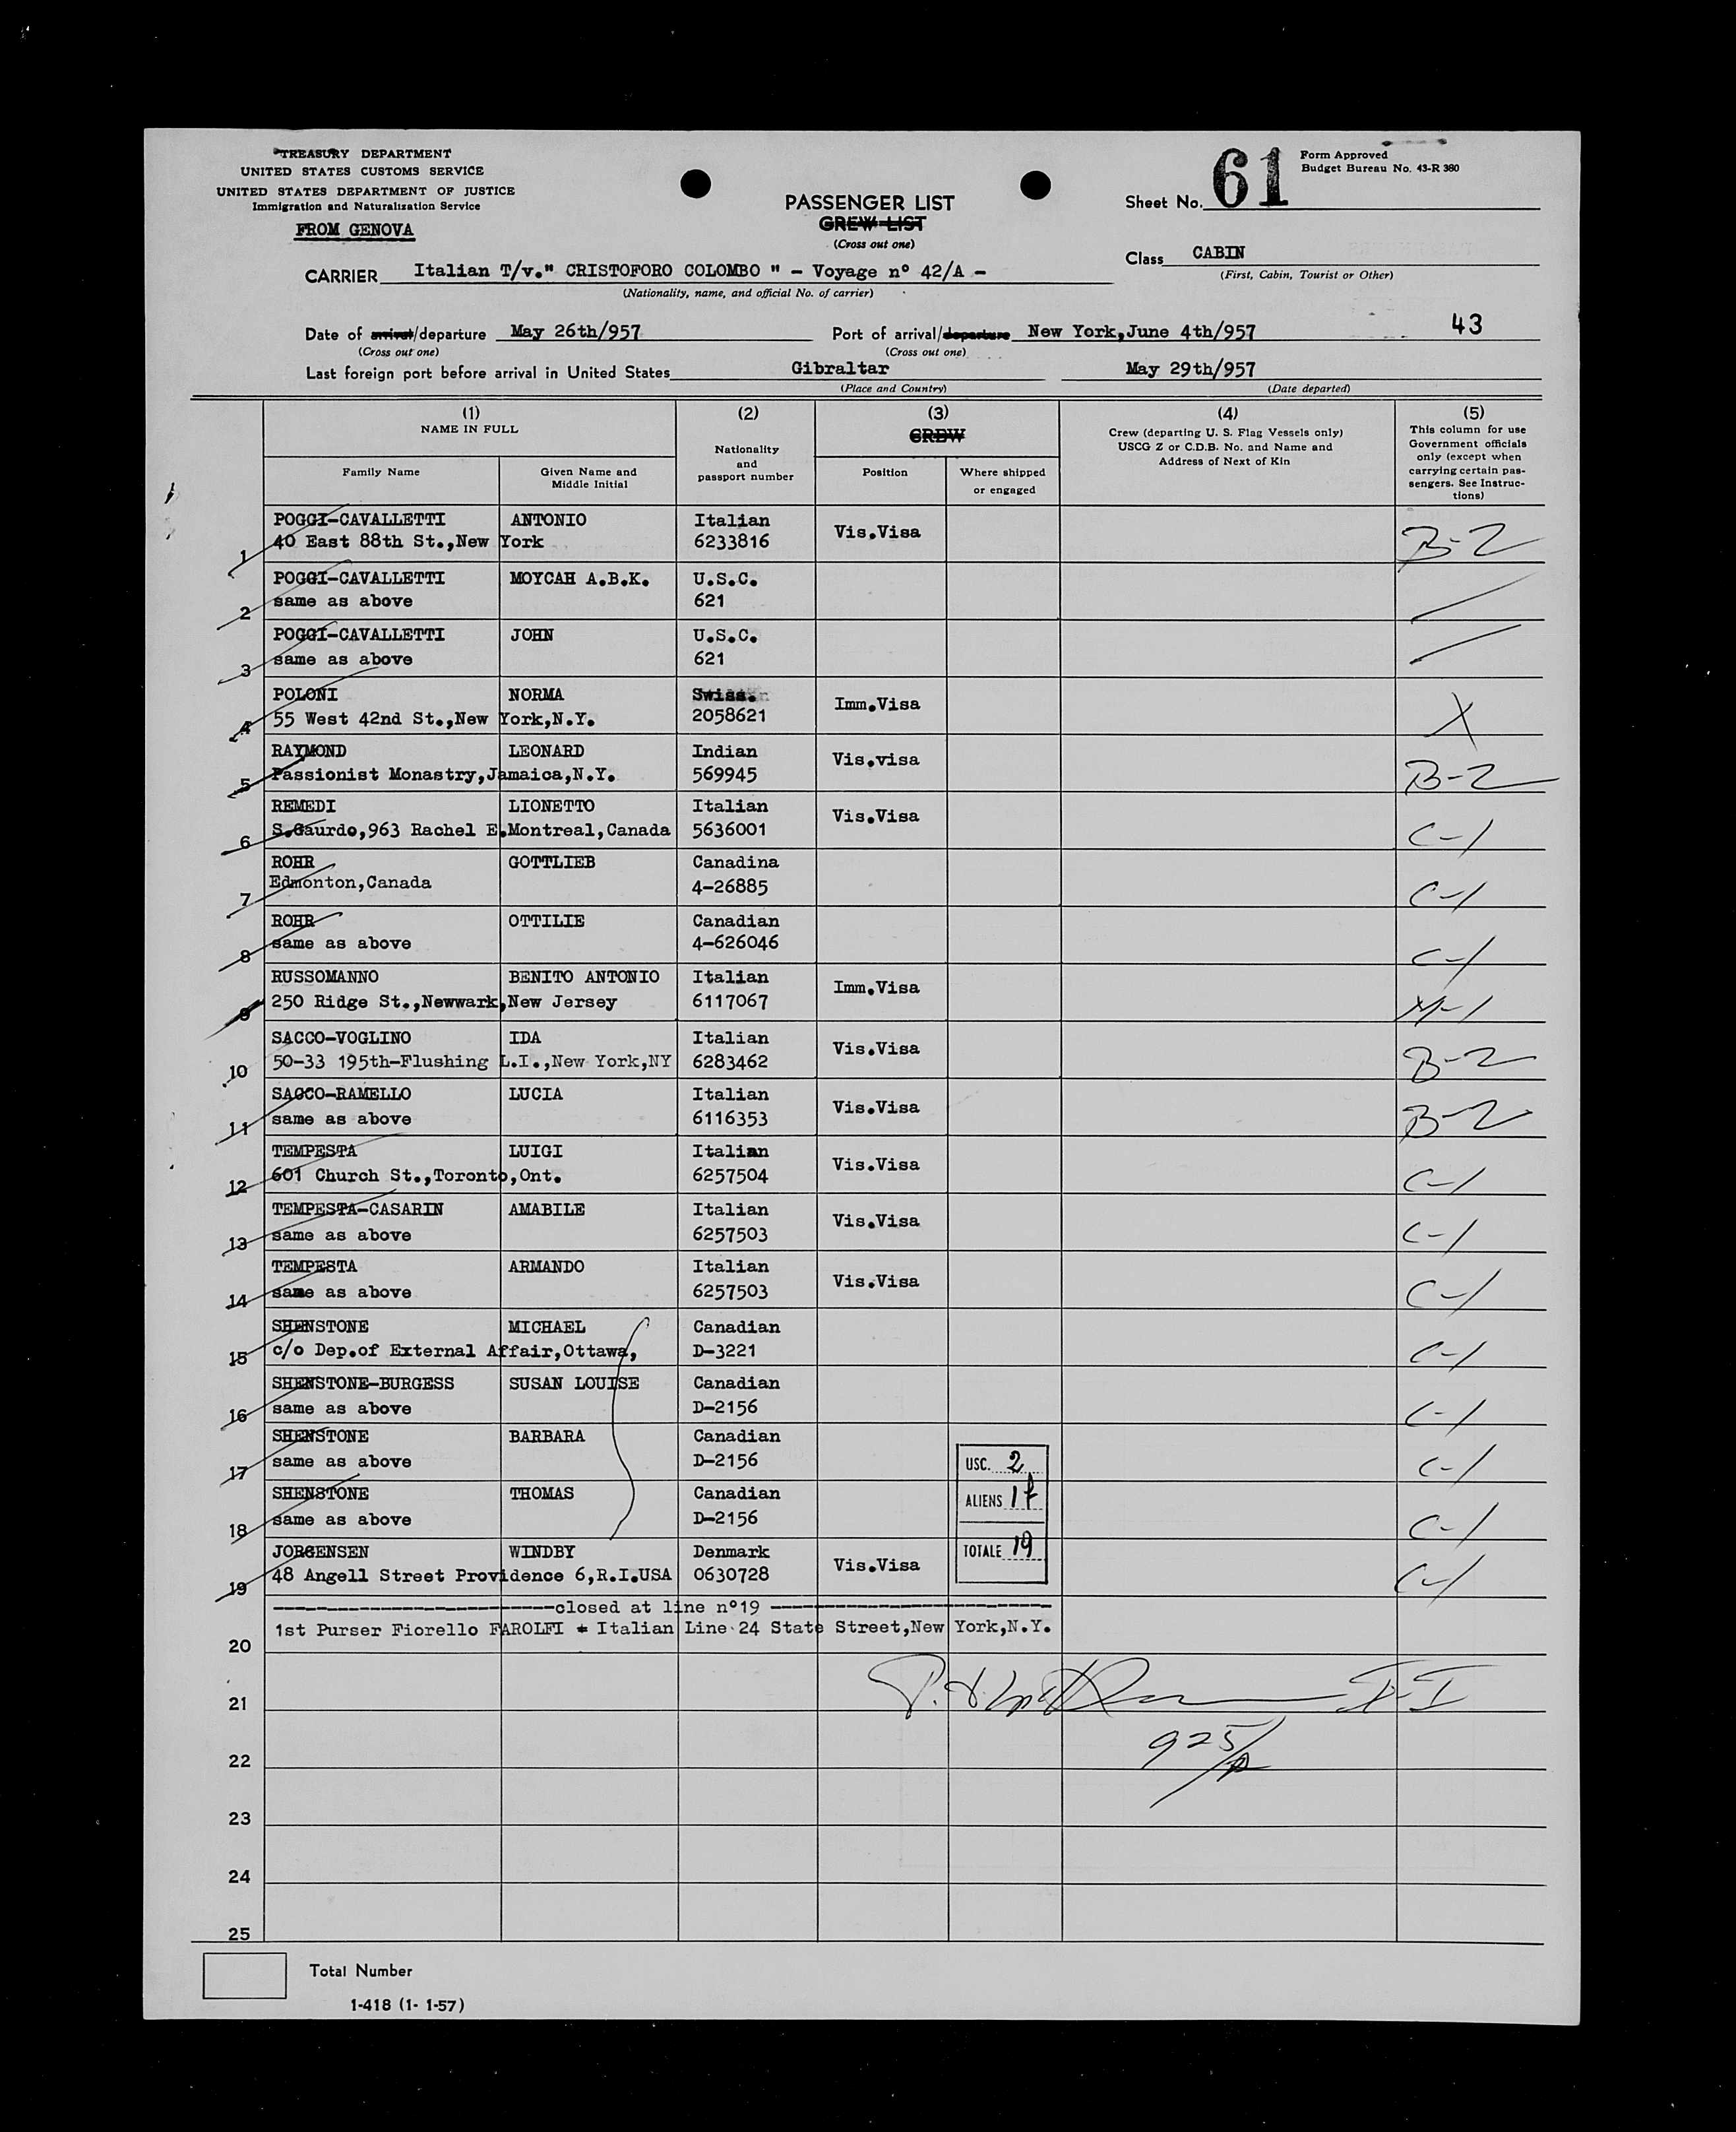 TREASURY DEPARTMENT
UNITED STATES CUSTOMS SERVICE
UNITED STATES DEPARTMENT OF JUSTICE
Immigration and Naturalization Service
FROM GENOVA
PASSENGER LIST
CREW LIST
(Cross out one)
Sheet No. 61
Form Approved
Budget Bureau No. 43-R 380
Class CABIN
(First, Cabin, Tourist or Other)
CARRIER Italian T/v." CRISTOFORO COLOMBO " - Voyage n° 42/A -
(Nationality, name, and official No. of carrier)
Date of arrival/departure May 26th/957 Port of arrival/departure New York,June 4th/957 43
(Cross out one) (Cross out one)
Last foreign port before arrival in United States Gibraltar May 29th/957
(Place and Country) (Date departed)
(1) (2) (3) (4) (5)
NAME IN FULL
Family Name
Given Name and Middle Initial
Nationality and passport number
CREW
Position
Where shipped or engaged
Crew (departing U. S. Flag Vessels only)
USCG Z or C.D.B. No. and Name and
Address of Next of Kin
This column for use
Government officials
only (except when
carrying certain pas-
sengers. See Instruc-
tions)
POGGI-CAVALLETTI ANTONIO Italian Vis.Visa B-2
1 40 East 88th St.,New York 6233816
POGGI-CAVALLETTI MOYCAH A.B.K. U.S.C.
2 same as above 621
POGGI-CAVALLETTI JOHN U.S.C.
3 same as above 621
POLONI NORMA Swiss. Imm.Visa X
4 55 West 42nd St.,New York,N.Y. 2058621
RAYMOND LEONARD Indian Vis.visa B-2
5 Passionist Monastry,Jamaica,N.Y. 569945
REMEDI LIONETTO Italian Vis.Visa C-1
6 S.Gaurdo,963 Rachel E.Montreal,Canada 5636001
ROHR GOTTLIEB Canadina C-1
7 Edmonton,Canada 4-26885
ROHR OTTILIE Canadian C-1
8 same as above 4-626046
RUSSOMANNO BENITO ANTONIO Italian Imm.Visa
9 250 Ridge St.,Newwark,New Jersey 6117067
SACCO-VOGLINO IDA Italian Vis.Visa B-2
10 50-33 195th-Flushing L.I.,New York,NY 6283462
SACCO-RAMELLO LUCIA Italian Vis.Visa B-2
11 same as above 6116353
TEMPESTA LUIGI Italian Vis.Visa C-1
12 601 Church St.,Toronto,Ont. 6257504
TEMPESTA-CASARIN AMABILE Italian Vis.Visa C-1
13 same as above 6257503
TEMPESTA ARMANDO Italian Vis.Visa C-1
14 same as above 6257503
SHENSTONE MICHAEL Canadian C-1
15 c/o Dep.of External Affair,Ottawa, D-3221
SHENSTONE-BURGESS SUSAN LOUISE Canadian C-1
16 same as above D-2156
SHENSTONE BARBARA Canadian C-1
17 same as above D-2156
USC. 2
SHENSTONE THOMAS Canadian C-1
ALIENS 17
18 same as above D-2156
TOTALE 19
JORGENSEN WINDBY Denmark Vis.Visa C-1
19 48 Angell Street Providence 6,R.I.USA 0630728
closed at line n°19
20 1st Purser Fiorello FAROLFI * Italian Line 24 State Street,New York,N.Y.
21
22 925
23
24
25
Total Number
1-418 (1- 1-57)